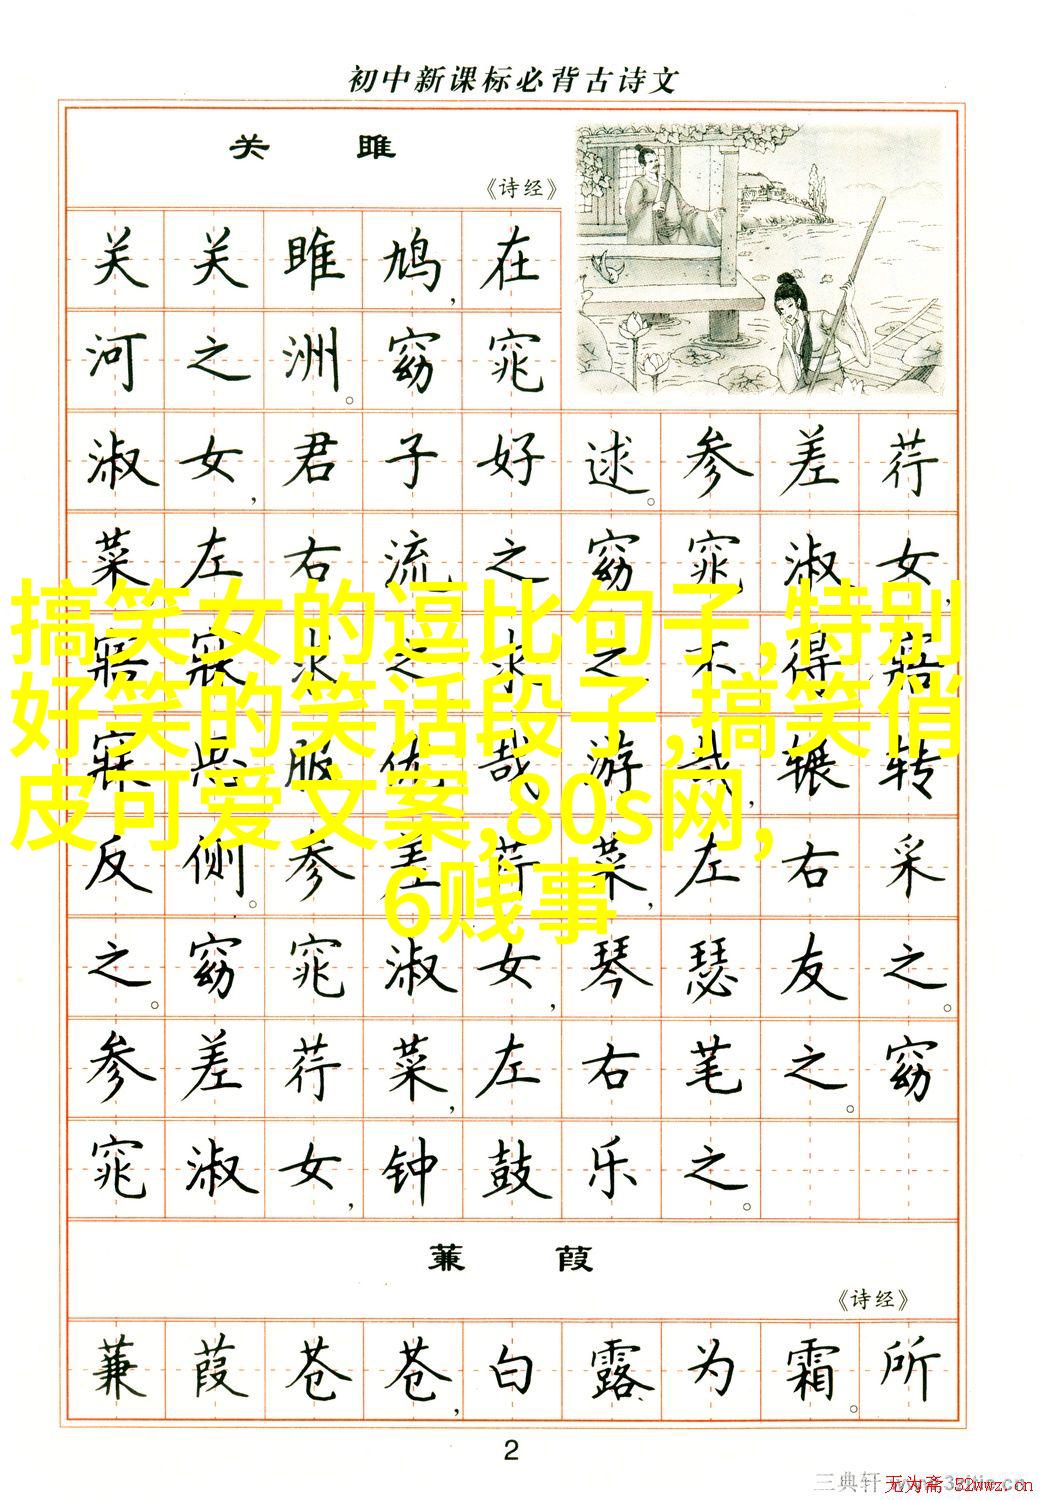 初中新课标必背古诗文
关 雎
《诗经》
关关雎鸠,在
河之洲。窈窕
淑女,君子好逑。参差荇
菜,左右流之。窈窕淑女,
寤寐求之。求之不得,寤
寐思服。优哉游哉,辗转
反侧。参差荇菜,左右采
之。窈窕淑女,琴瑟友之。
参差荇菜,左右芼之。窈
窕淑女,钟鼓乐之。
蒹 葭
《诗经》
蒹葭苍苍,白露为霜。所
2
搞笑女的逗比句子,特别
好笑的笑话段子,搞笑俏
皮可爱文案,80s网,
6贱事
三典轩
无为斋 52wwz.cn